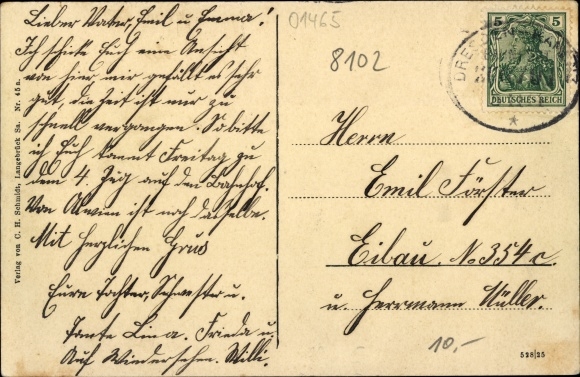 Lieber Vater, Emil u. Emma!
Ich schicke Euch eine Ansicht
von hier, mir gefällt es sehr
gut, die Zeit ist nur zu
schnell vergangen. So bitte
ich Euch kommt Freitag zu
dem 4. Zug auf den Bahnhof.
Von ist noch dasselbe.
Mit herzlichen Grus
Eure Tochter, Schwester u.
Tante Lina. Frieda u.
Auf Wiedersehen. Willi.
Verlag von C. H. Schmidt, Langebrück Sa. Nr. 45a.
01465
8102
5 5
DEUTSCHES REICH
DRESDEN
Herrn
Emil Förster
Eibau. No 354 c.
u. Herrmann Müller.
10.-
528|25